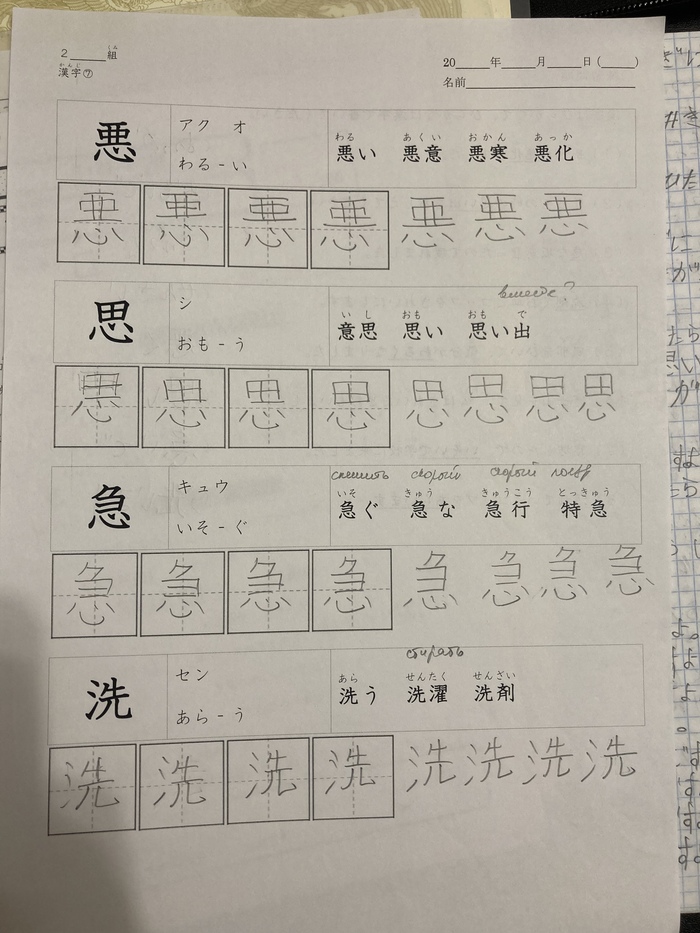 2____組 20____年____月____日(____)
くみ
漢字⑦ 名前____
かんじ
悪
アク オ
わる-い
わる あくい おかん あっか
悪い 悪意 悪寒 悪化
悪 悪 悪 悪 悪 悪 悪
思
シ
おも-う
вместе?
いし おも おも で
意思 思い 思い出
思 思 思 思 思 思 思 思
急
キュウ
いそ-ぐ
спешить скорый скорый поезд
いそ きゅう きゅうこう とっきゅう
急ぐ 急な 急行 特急
急 急 急 急 急 急 急 急
洗
セン
あら-う
стирать
あら せんたく せんざい
洗う 洗濯 洗剤
洗 洗 洗 洗 洗 洗 洗 洗